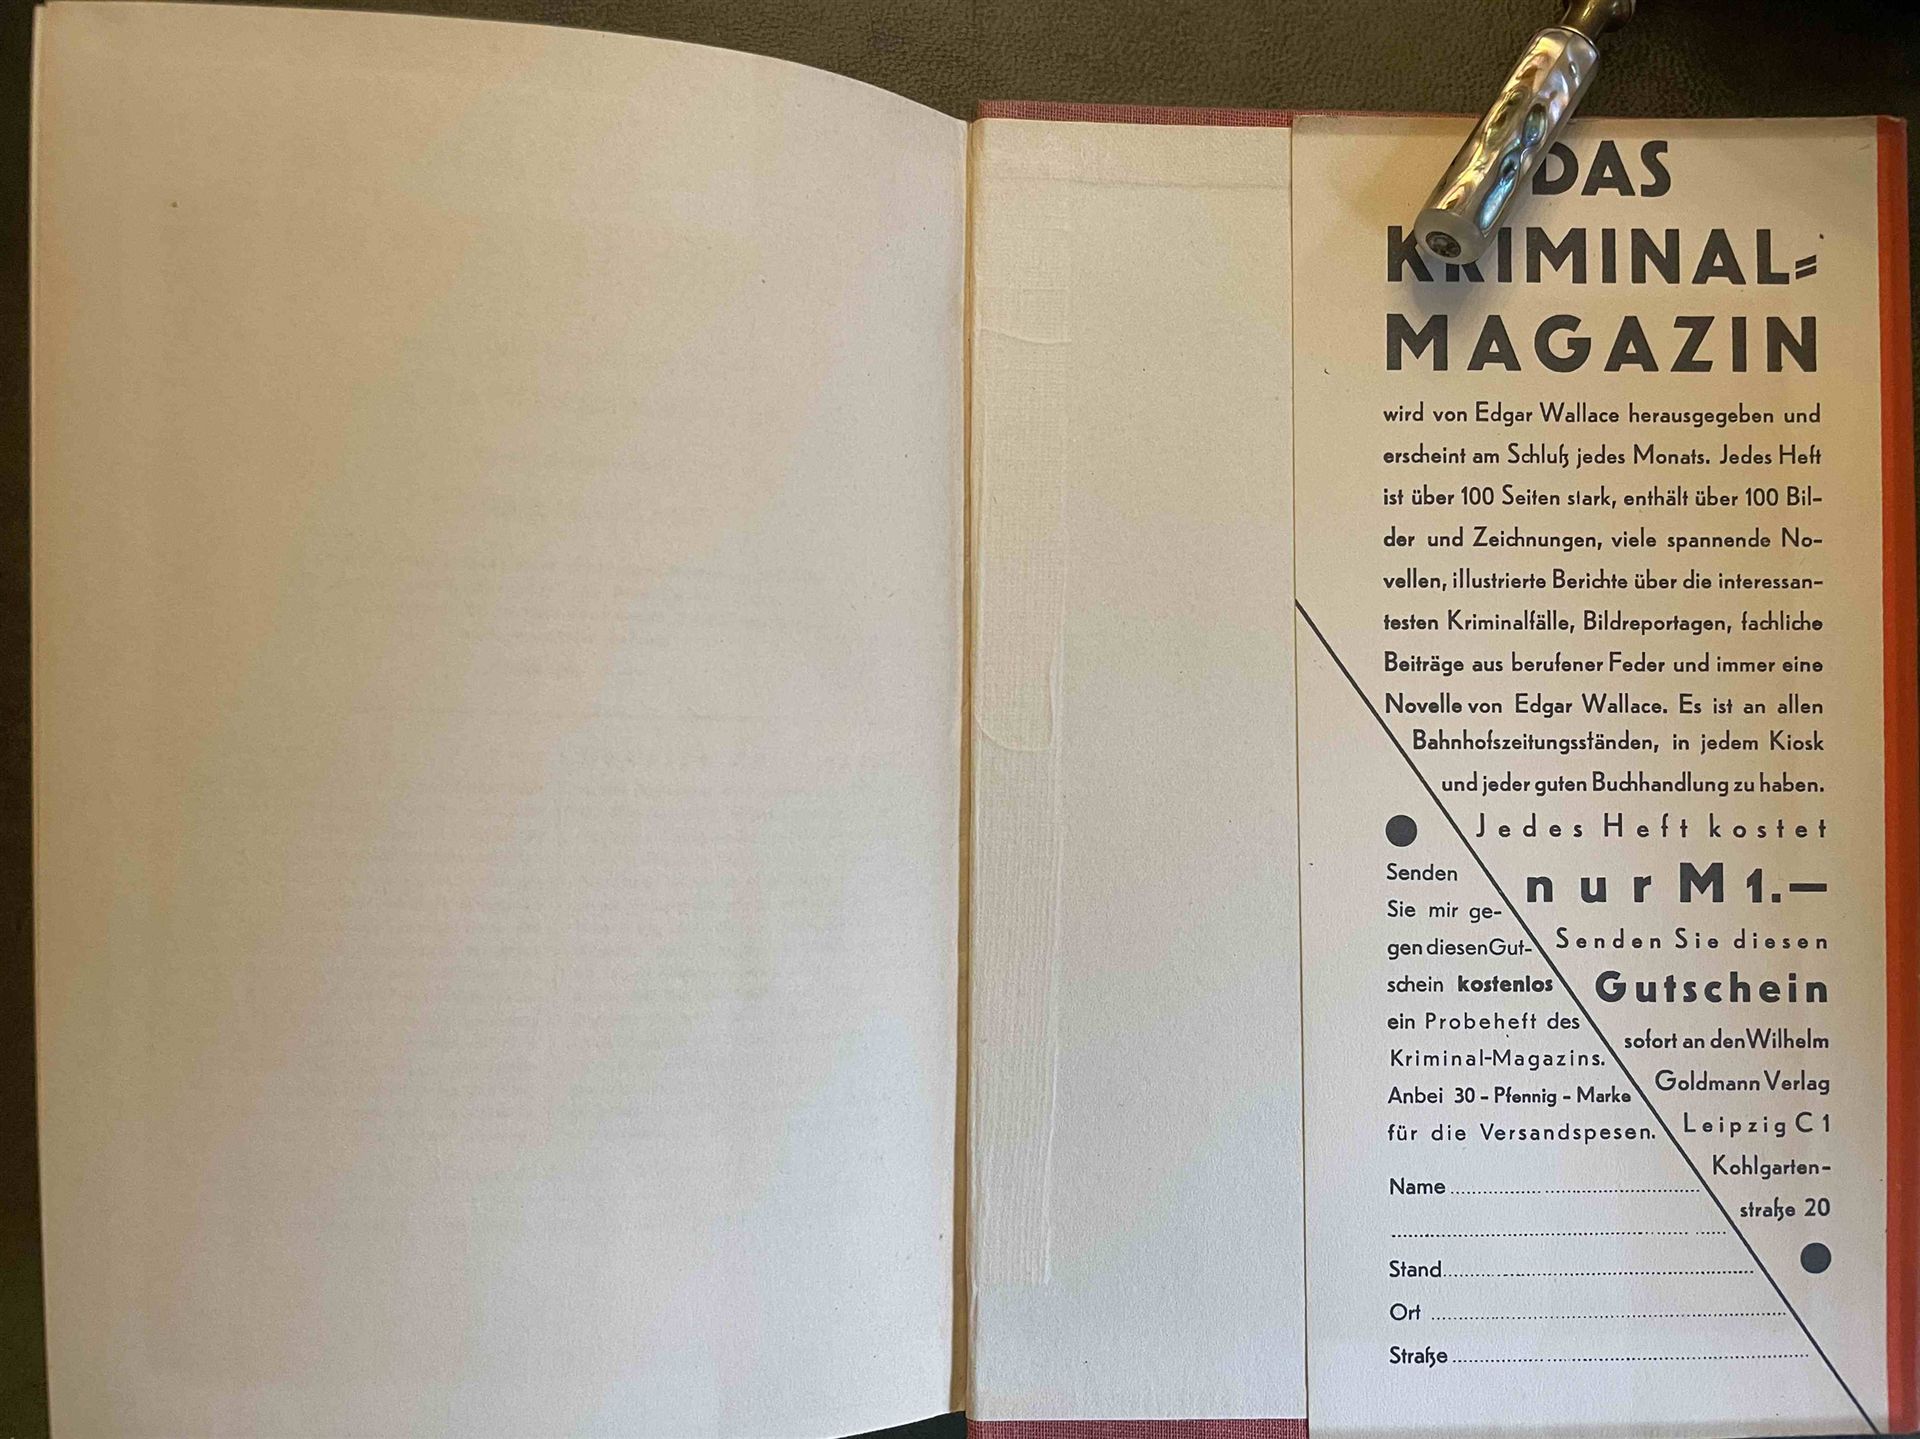 DAS
KRIMINAL=
MAGAZIN
wird von Edgar Wallace herausgegeben und
erscheint am Schluß jedes Monats. Jedes Heft
ist über 100 Seiten stark, enthält über 100 Bil-
der und Zeichnungen, viele spannende No-
vellen, illustrierte Berichte über die interessan-
testen Kriminalfälle, Bildreportagen, fachliche
Beiträge aus berufener Feder und immer eine
Novelle von Edgar Wallace. Es ist an allen
Bahnhofszeitungsständen, in jedem Kiosk
und jeder guten Buchhandlung zu haben.
Jedes Heft kostet
nur M 1.—
Senden Sie diesen
Gutschein
sofort an den Wilhelm
Goldmann Verlag
Leipzig C 1
Kohlgarten-
straße 20
Senden
Sie mir ge-
gen diesen Gut-
schein kostenlos
ein Probeheft des
Kriminal-Magazins.
Anbei 30 - Pfennig - Marke
für die Versandspesen.
Name
Stand
Ort
Straße